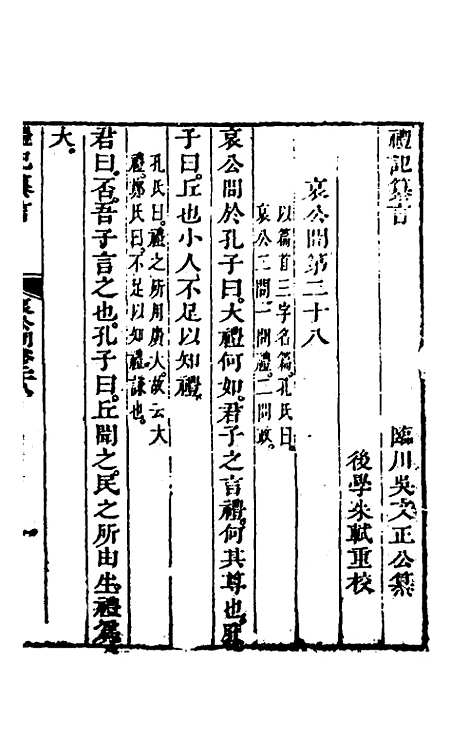 禮記纂言
臨川吳文正公纂
後學朱軾重校
哀公問第三十八
以篇首三字名篇孔氏曰
哀公三問一問禮二問政
哀公問於孔子曰大禮何如君子之言禮何其尊也孔
子曰丘也小人不足以知禮
孔氏曰禮之所用廣大故云大
禮鄭氏曰不足以知禮謙也
君曰否吾子言之也孔子曰丘聞之民之所由生禮為
大
禮記纂言
哀公問卷三十八
一